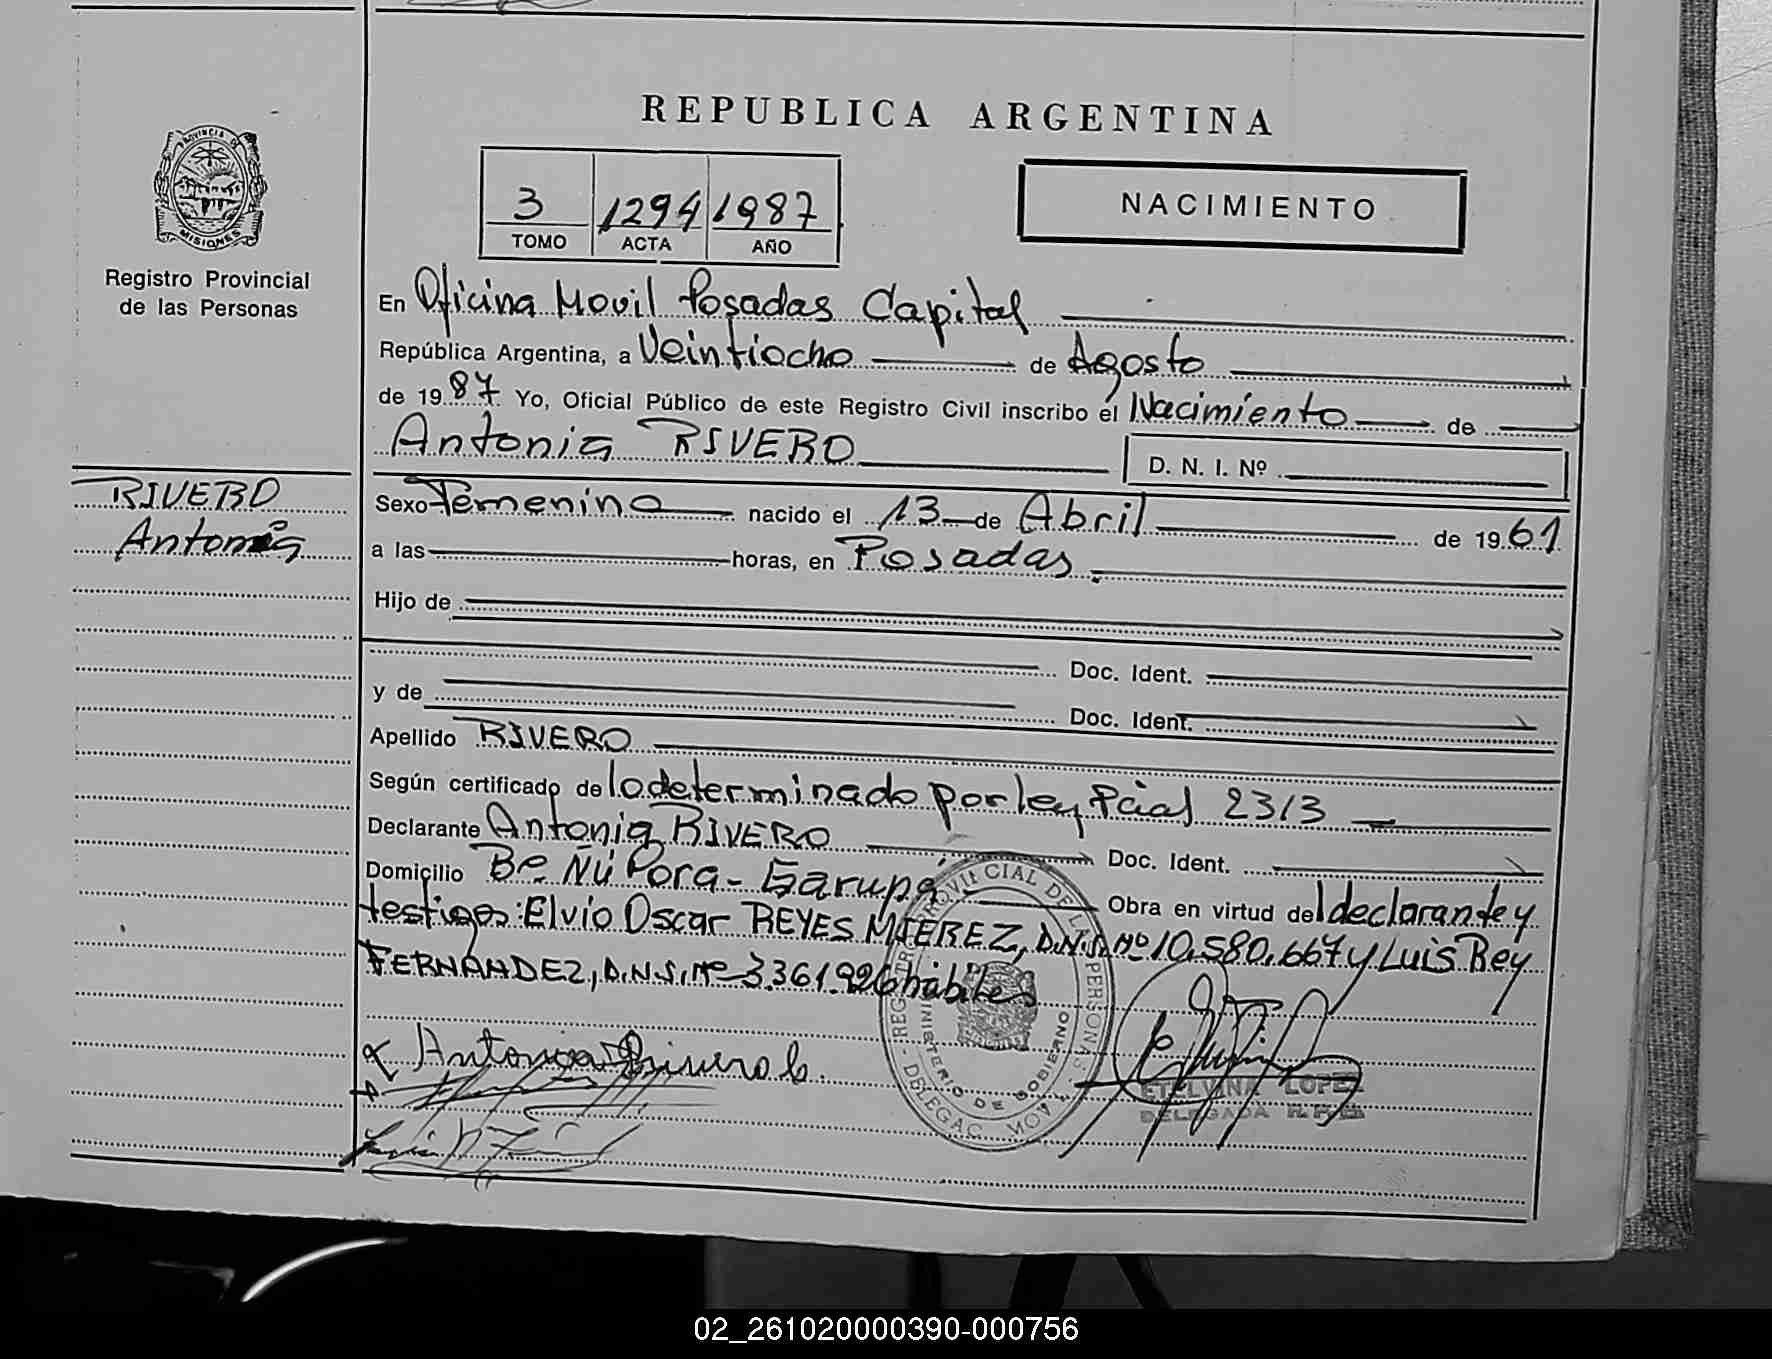 REPUBLICA ARGENTINA
PROVINCIA DE
MISIONES
Registro Provincial
de las Personas
3 1294 1987
TOMO ACTA AÑO
NACIMIENTO
En Oficina Movil Posadas Capital
República Argentina, a Veintiocho de Agosto
de 1987. Yo, Oficial Público de este Registro Civil inscribo el Nacimiento de
Antonia RIVERO
D. N. I. Nº
RIVERO
Antonia
Sexo Femenino nacido el 13 de Abril de 1961
a las horas, en Posadas
Hijo de
Doc. Ident.
y de
Doc. Ident.
Apellido RIVERO
Según certificado de lo determinado por ley Pcial 2313
Declarante Antonia RIVERO Doc. Ident.
Domicilio Bº Ñú Porá - Garupá Obra en virtud del declarante y
testigos: Elvio Oscar REYES MIEREZ, D.N.I. Nº 10.580.667 y Luis Rey
FERNANDEZ, D.N.I. Nº 3.361.926 hábiles
Antonia Rivero
REGISTRO PROVINCIAL DE LAS PERSONAS
MINISTERIO DE GOBIERNO
ETELVINA LOPEZ
DELEGADA R.P.P.
02_261020000390-000756